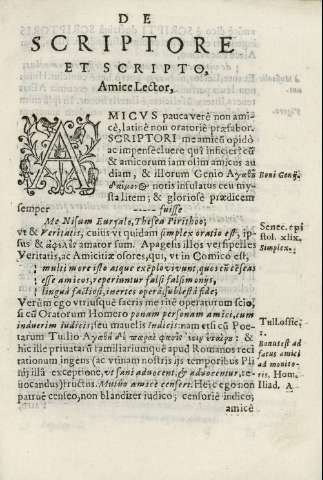 DE
SCRIPTORE
ET SCRIPTO,
Amice Lector,
AMICVS pauca verè non ami-
cè, latinè non oratoriè præfabor.
SCRIPTORI me amicũ opidò
ac impensè cluere
& amicorum iam olim amicos au
diam, & illorum Genio
& notis insulatus ceu my-
sta litem; & gloriosè prædicem
semper fuisse
Me Nisum Euryalo, Thesea Pirithoo;
vt & Veritatis, cuius vt quidam simplex oratio est, ip-
sus & amator sum. Apagesis illos versipelles
Veritatis, ac Amicitiæ osores, qui, vt in Comico est,
multi more isto atque exemplo vivunt, quos cũ cẽseas
esse amicos, reperiuntur falsi falsimonijs,
lingua factiosi, inertes opera, sublesta fide;
Verùm ego vtriusque sacris me ritè operaturum scio,
si cũ Oratorum Homero ponam personam amici, cum
induerim iudicis; seu mauelis iudicis: nam etsi cũ Poe-
tarum Tullio
hic ille privatarũ familiariumque apud Romanos reci
rationum ingens (ac vtinam nostris ijs temporibus Pli
nij illâ exceptione, vt sani advocent, & advocentur, re-
uocandus) fructus. Mutuò amicè censeri. Heic ego non
patruè censeo, non blandizer iudico; censoriè indico;
amicè
Boni Genij.
Senec. epi
stol. xlix.
Simplex.
Tull. offic.
Bonus est ad
fatus amici
ad monito-
ris. Hom.
Iliad. Λ